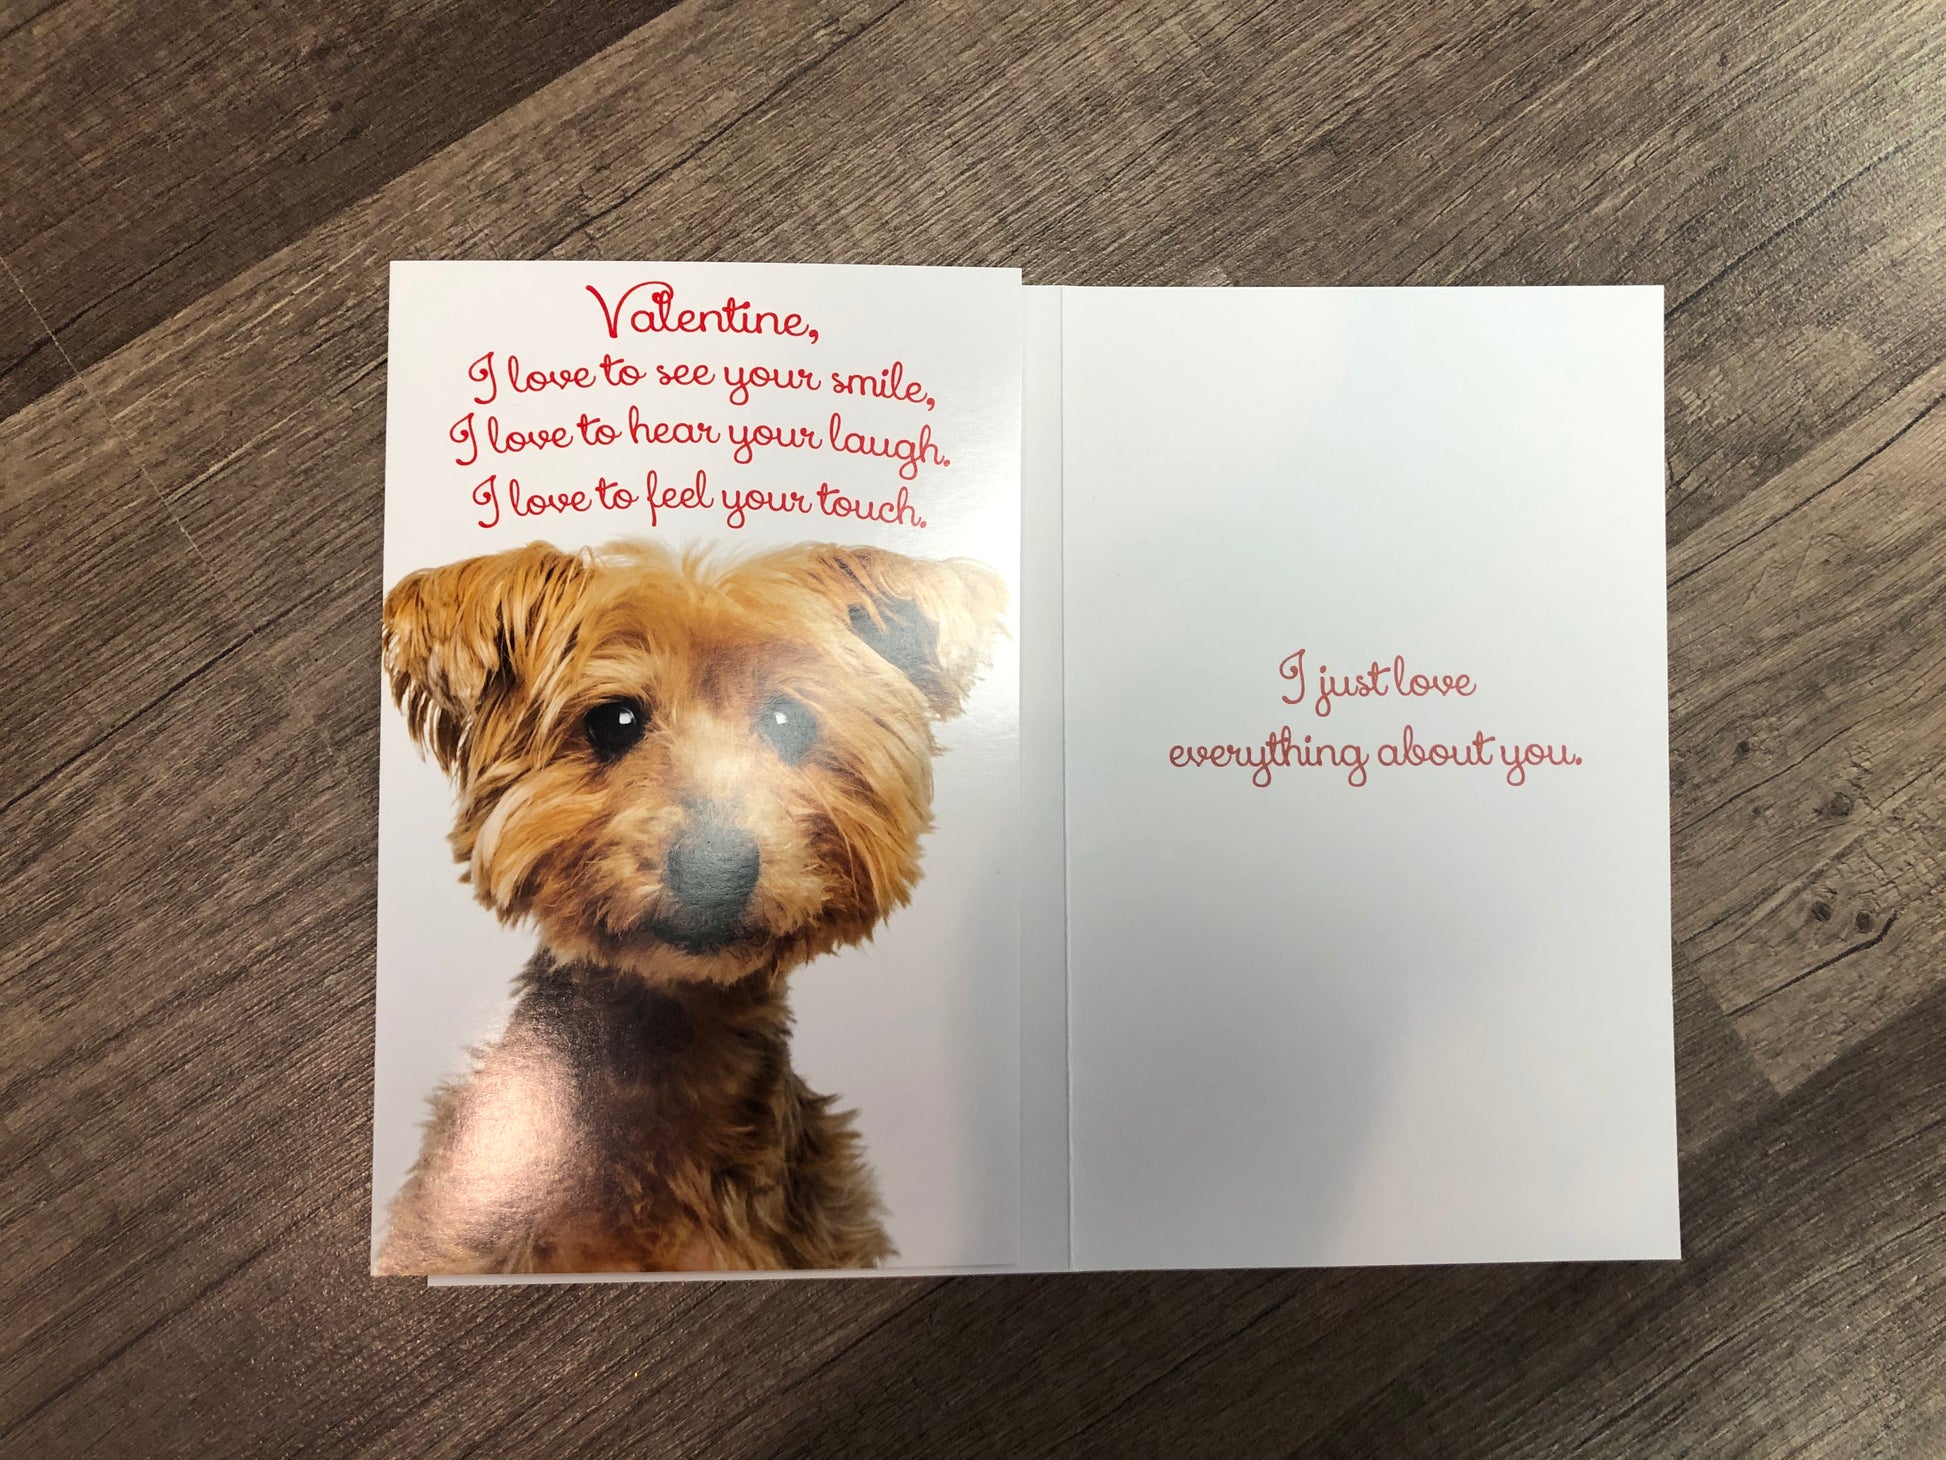 Valentine,
I love to see your smile,
I love to hear your laugh.
I love to feel your touch.
I just love
everything about you.